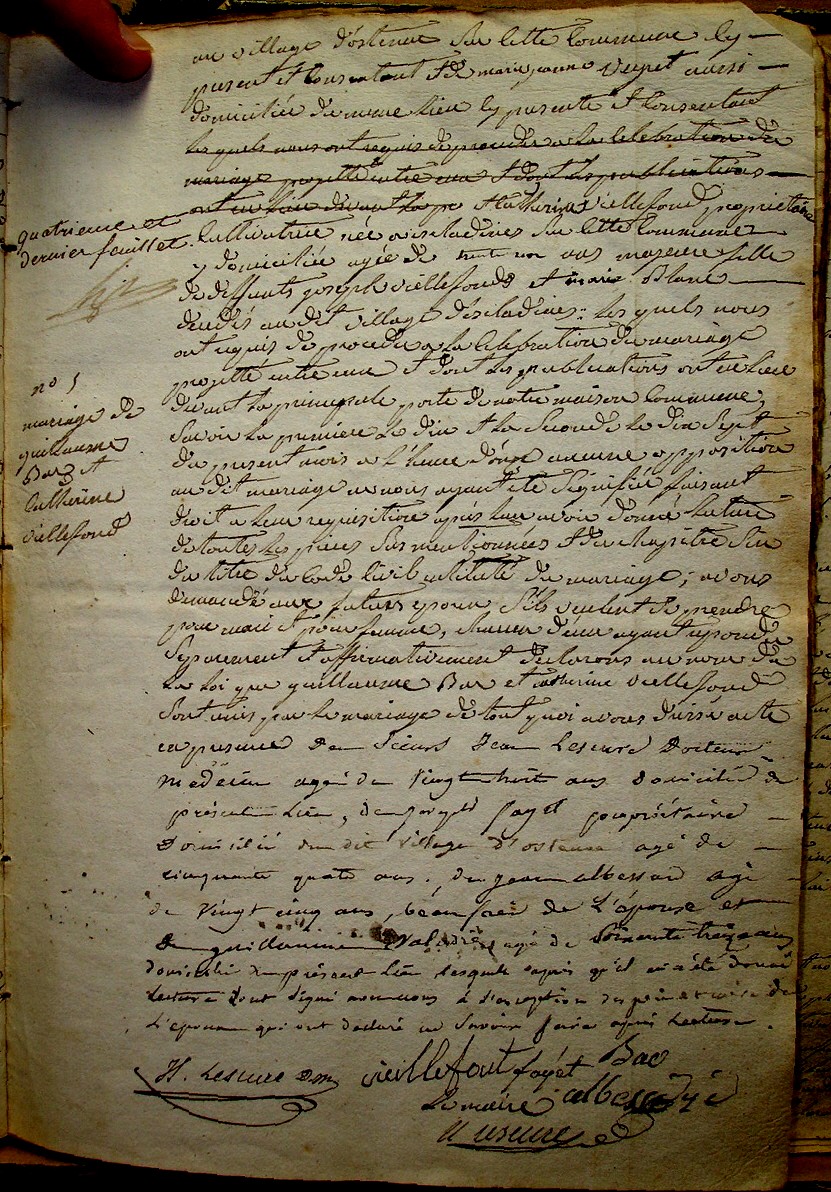 au village d'ostenac sur cette commune cy
present et consentant et de marie jeanne veyret aussi
domiciliée du meme lieu cy presente et consentant
les quels nous ont requis de proceder a la celebration du
mariage projetté entre eux et dont les publications
ont eu lieu devant la pe et catherine viellefond, proprietaire
quatrieme et
dernier feuillet.
cultivatrice née a isladines sur cette commune
y domiciliée agée de trente ans majeure fille
de deffunts joseph viellefond et marie Blanc
decedés au dit village disladines: les quels nous
ont requis de proceder a la celebration du mariage
projetté entre eux et dont les publications ont eu lieu
devant la principale porte de notre maison commune,
savoir la premiere le dix et la seconde le dix sept
du present mois a l'heure d'onze aucune opposition
au dit mariage ne nous ayant été signifiée faisant
droit a leur requisition après leur avoir donné lecture
de toutes les pieces sus mentionnées et du chapitre six
du titre du code civil intitulé du mariage; avons
demandé aux futurs epoux s'ils veulent se prendre
pour mari et pour femme, chacun d'eux ayant repondu
separement et affirmativement declarons au nom de
la loi que guillaume Bac et catherine viellefond
sont unis par le mariage de tout quoi avons dressé acte
no 5
mariage de
guillaume
Bac et
Catherine
viellefond
en presence des sieurs Jean Lescure Docteur
médecin agé de vingt huit ans domicilié du
présent lieu, de joseph fayet propriétaire
domicilié du dit village d'ostenac agé de
cinquante quatre ans, de jean albessard agé
de vingt cinq ans, beau frère de L'épouse et
de guillaume Valadier agé de soixante treize ans
domicilié du présent lieu lesquels après qu'il en a été donné
Lecture l'ont signé avec nous à l'exception des père et mère de
L'époux qui ont declaré ne savoir faire après Lecture.
H. Lescure Dm vieillefont fayet Bac
Le maire albessard
Lescure